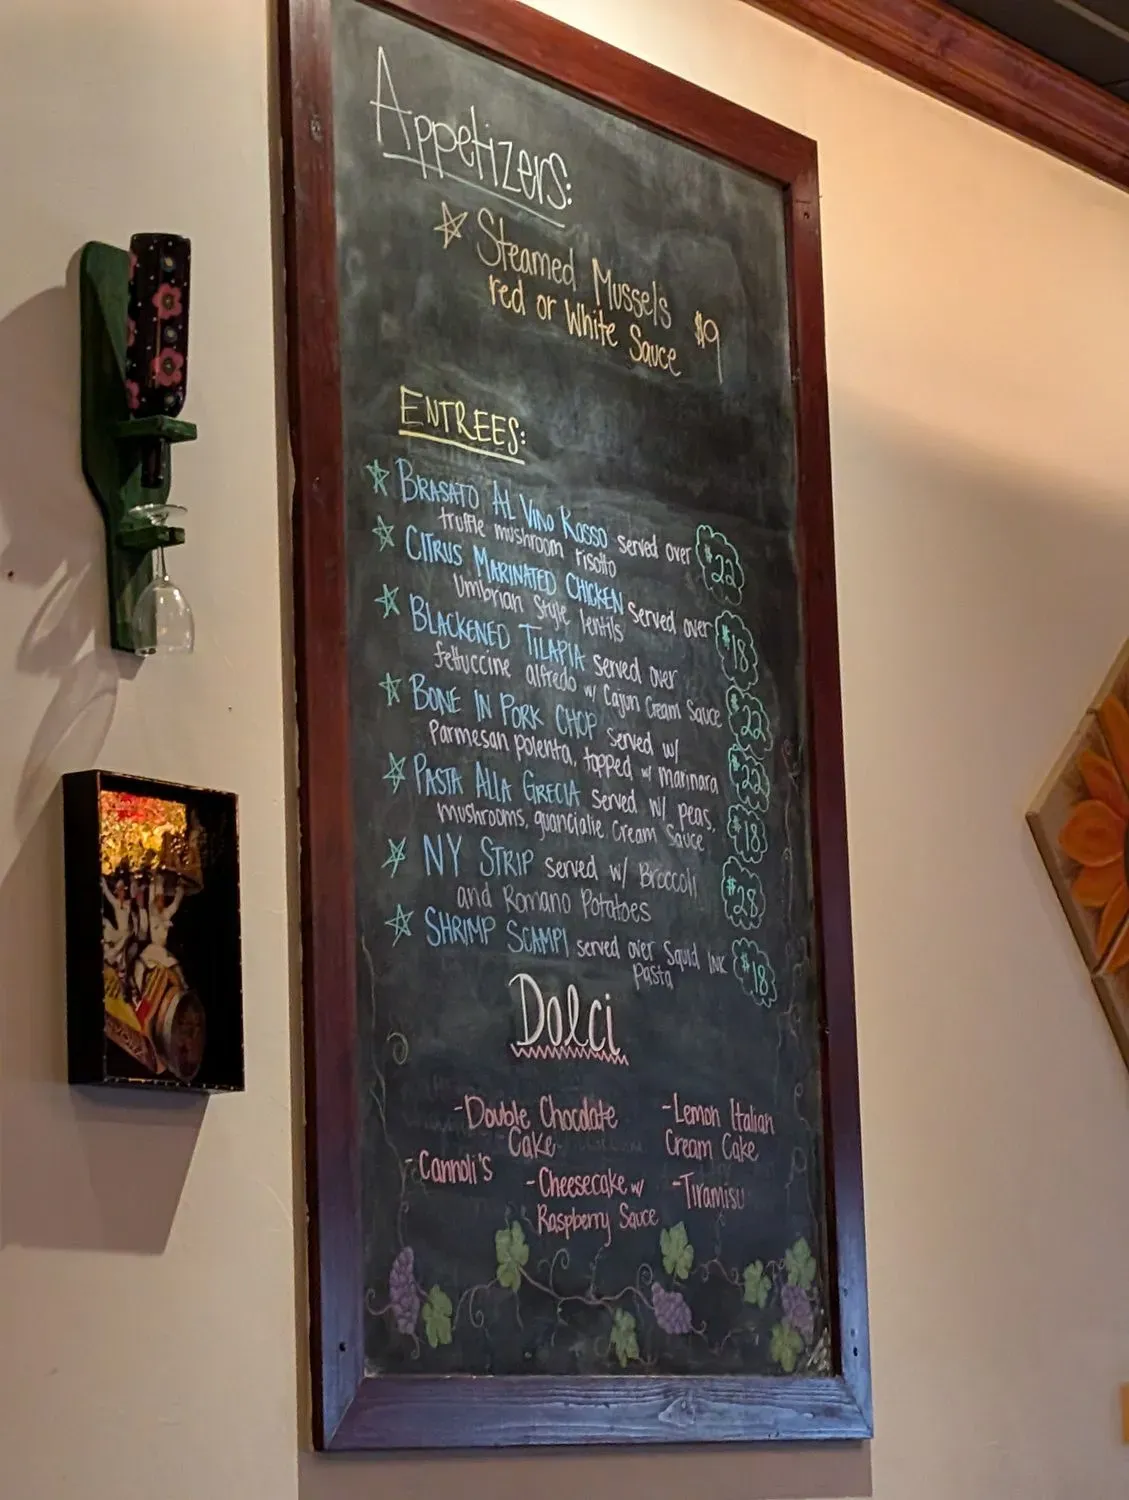 Appetizers:
Steamed Mussels
red or White Sauce $9
ENTREES:
BRASATO AL VINO ROSSO served over
truffle mushroom risotto $22
CITRUS MARINATED CHICKEN served over
Umbrian style lentils $18
BLACKENED TILAPIA served over
fettuccine alfredo w/ Cajun Cream Sauce $22
BONE IN PORK CHOP served w/
Parmesan polenta, topped w/ marinara $22
PASTA ALLA GRECIA served w/ peas,
mushrooms, guancialie Cream Sauce $18
NY STRIP served w/ Broccoli
and Romano Potatoes $28
SHRIMP SCAMPI served over Squid Ink $18
Pasta
Dolci
-Double Chocolate
Cake
-Lemon Italian
Cream Cake
-Cannoli's
-Cheesecake w/
Raspberry Sauce
-Tiramisu